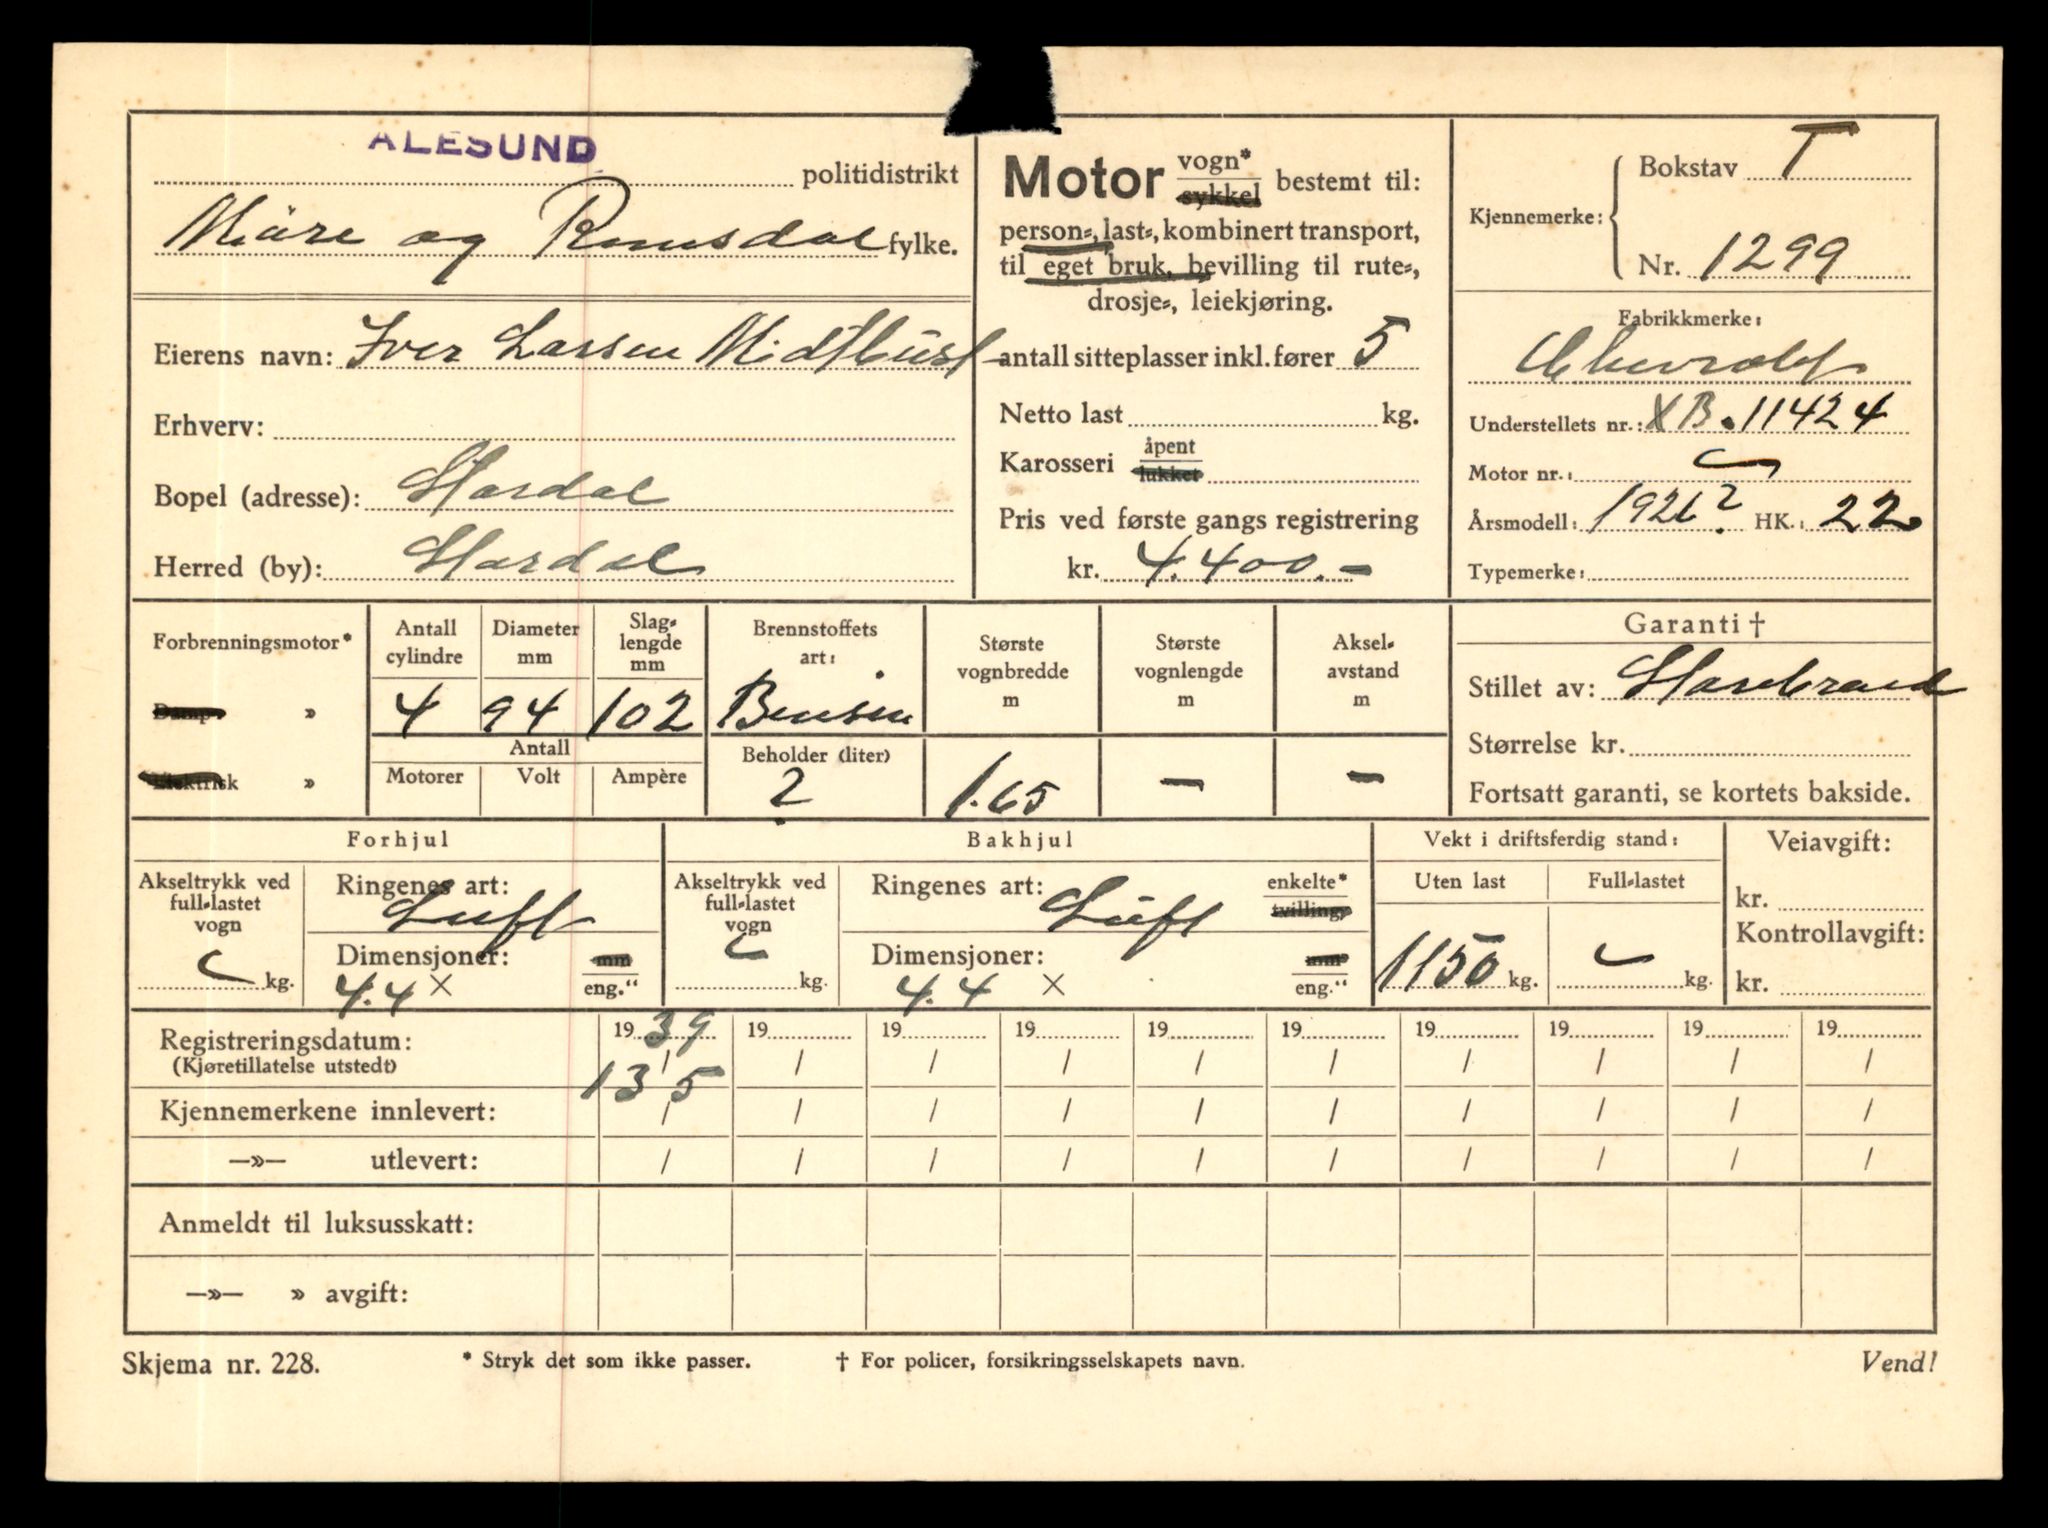 ÅLESUND
politidistrikt
Møre og Romsdal fylke.
Eierens navn: Iver Larsen Midthust
Erhverv:
Bopel (adresse): Stordal
Herred (by): Stordal
Motor vogn* sykkel bestemt til:
person-, last-, kombinert transport,
til eget bruk, bevilling til rute-,
drosje-, leiekjøring.
antall sitteplasser inkl. fører 5
Netto last kg.
Karosseri åpent lukket
Pris ved første gangs registrering
kr. 4.400.-
Kjennemerke: Bokstav T
Nr. 1299
Fabrikkmerke:
Chevrolet
Understellets nr.: XB.11424
Motor nr.:
Årsmodell: 1926? HK.: 22
Typemerke:
Forbrenningsmotor*
Damp- »
Elektrisk »
Antall cylindre
4
Diameter mm
94
Slag-lengde mm
102
Antall
Motorer Volt Ampère
Brennstoffets art:
Bensin
Beholder (liter)
?
Største vognbredde m
1.65
Største vognlengde m
—
Aksel-avstand m
—
Garanti †
Stillet av: Storebrand
Størrelse kr.
Fortsatt garanti, se kortets bakside.
Forhjul
Akseltrykk ved full-lastet vogn
kg.
Ringenes art:
Luft
Dimensjoner: mm
4.4 × eng."
Bakhjul
Akseltrykk ved full-lastet vogn
kg.
Ringenes art: enkelte*
Luft tvilling
Dimensjoner: mm
4.4 × eng."
Vekt i driftsferdig stand:
Uten last Full-lastet
1150 kg. kg.
Veiavgift:
kr.
Kontrollavgift:
kr.
Registreringsdatum: 1939 19 19 19 19 19 19 19 19 19
(Kjøretillatelse utstedt) 13/5 / / / / / / / / /
Kjennemerkene innlevert: / / / / / / / / / /
—»— utlevert: / / / / / / / / / /
Anmeldt til luksusskatt:
—»— » avgift:
Skjema nr. 228. * Stryk det som ikke passer. † For policer, forsikringsselskapets navn. Vend!